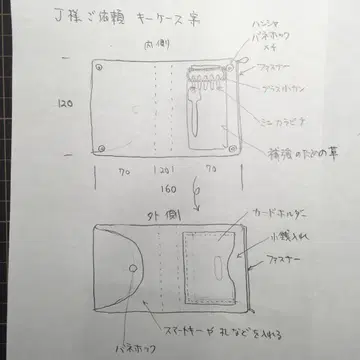 J様ご依頼 キーケース案
内側
バネホック
×4
ファスナー
ミニカラビナ
補強のための革
120
70 20 70
160
外側
カードホルダー
小銭入れ
ファスナー
スマートキーや札などを入れる
バネホック